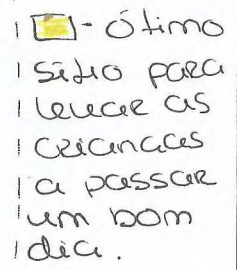 - Ótimo
sitio para
levar as
crianças
a passar
um bom
dia.